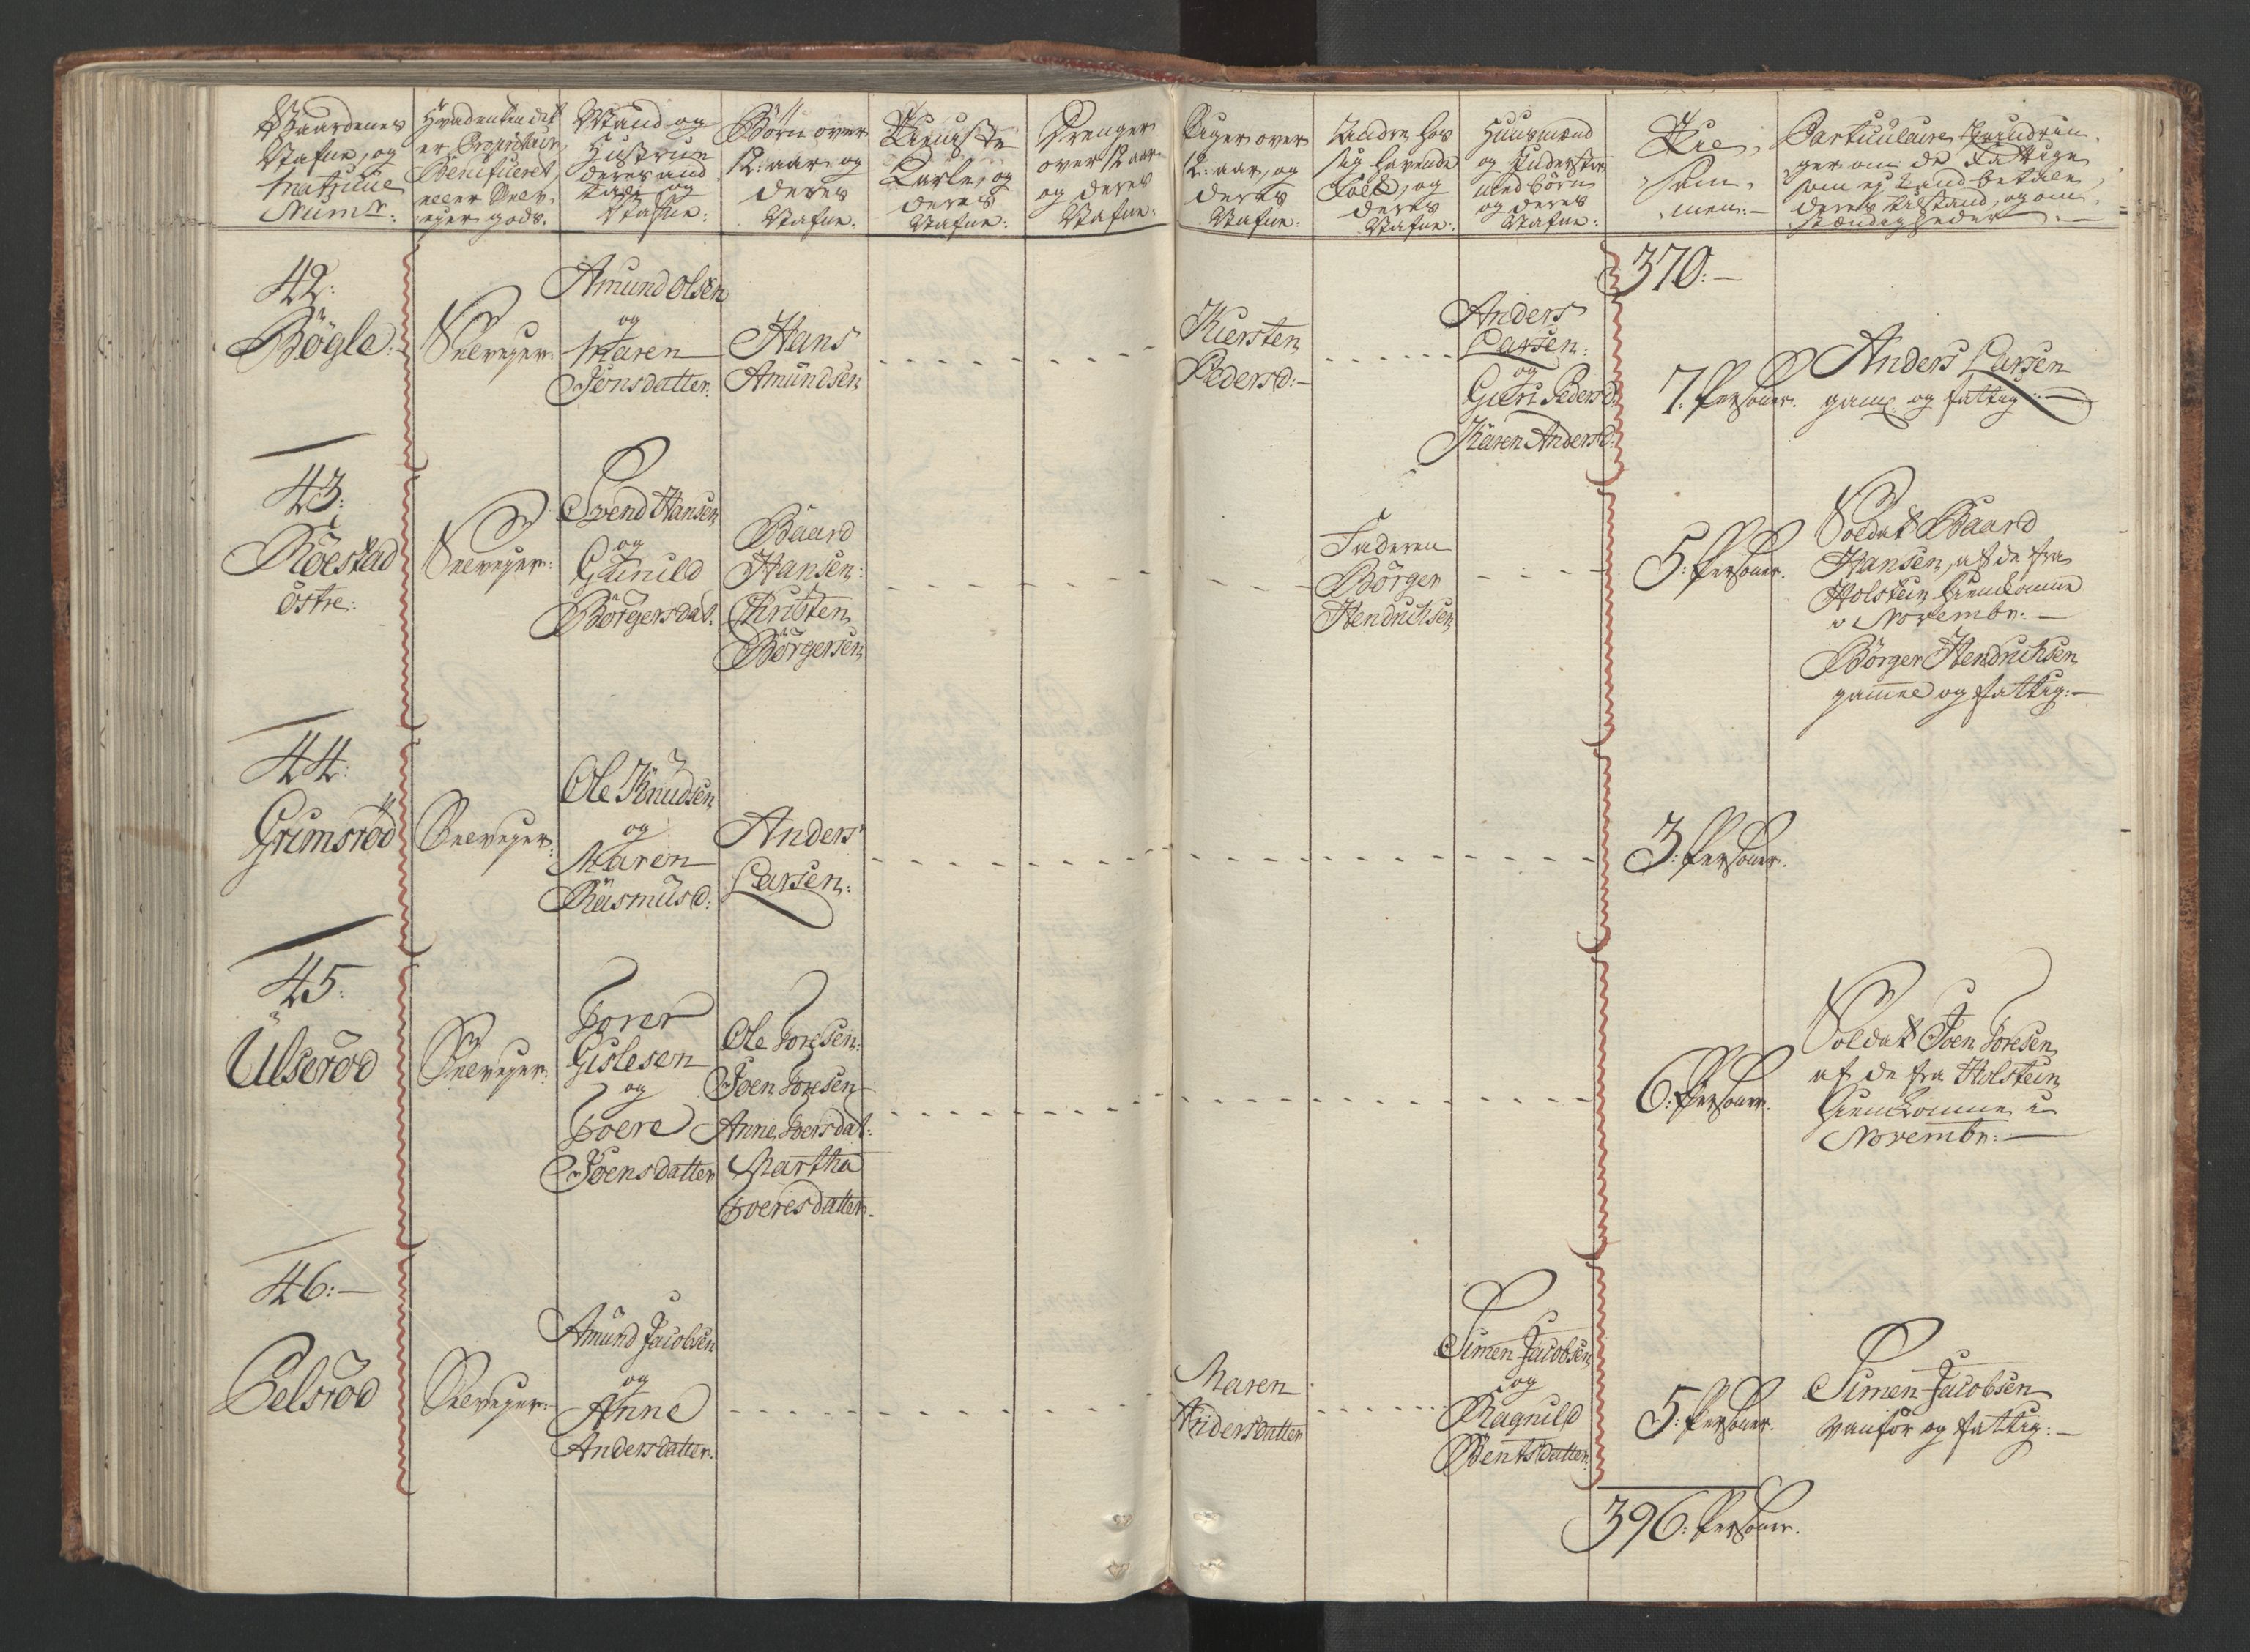 Gaardenes
Nafne, og
Matricul
Num̅r:
Hvad enten det
er Proprietair
Beneficeret
eller Selv-
ejer gods.
Mand og
Hustrue
deres and
tall og
Nafne:
Börn over
12: aar og
deres
Nafne:
Tieniste
Karle, og
deres
Nafne:
Drenger
over 12 aar
og deres
Nafne:
Piger over
12: aar, og
deres
Nafne:
Andre hos
sig havende
Folk, og
deres
Nafne:
Huusmænd
og Inderster
med börn
og deres
Nafne:
Til-
sam-
men:-
Particulaire Erindrin-
ger om de Fattige
som ej kand betale,
deres tilstand, og om-
stændigheder
370:-
42:
Bögle:
Selvejer:
Amund Olsen
og
Maren
Jonsdatter:
Hans
Amundsen
Kiersten
Pedersd:-
Anders
Larsen:
og
Guri Pedersd:
Karen Andersd:
7: Persohner.
Anders Larsen
gaml og fattig:-
43:
Röestad
östre:
Selvejer:
Svend Hansen
og
Gunild
Börgersdat:
Baard
Hansen:
Christen
Börgersen
Faderen
Börger
Hendrichsen
5: Persohner.
Soldat Baard
Hansen, af de fra
Holsteen hiemkomne
i Novembr:-
Börger Hendrichsen
gammel og fattig:-
44:
Grimsröd
Selvejer:
Ole Knudsen
og
Maren
Rasmusd:
Anders
Larsen:
3: Persohner.
45:
Ulseröd
Selvejer:
Torer
Gislesen
og
Toere
Joensdatter
Ole Toresen:
Joen Toresen
Anne Toersdat:
Martha
Toeresdatter.
6: Persohner.
Soldat Joen Toresen
af de fra Holsteen
hiemkomne i
Novembr:-
46:-
Pelsröd
Selvejer:
Amund Jacobsen
og
Anne
Andersdatter.
Maren
Andersdatter
Simen Jacobsen
og
Ragnild
Bentsdatter
5: Persohner.
Simen Jacobsen
vanför og fattig:-
396: Persohner.